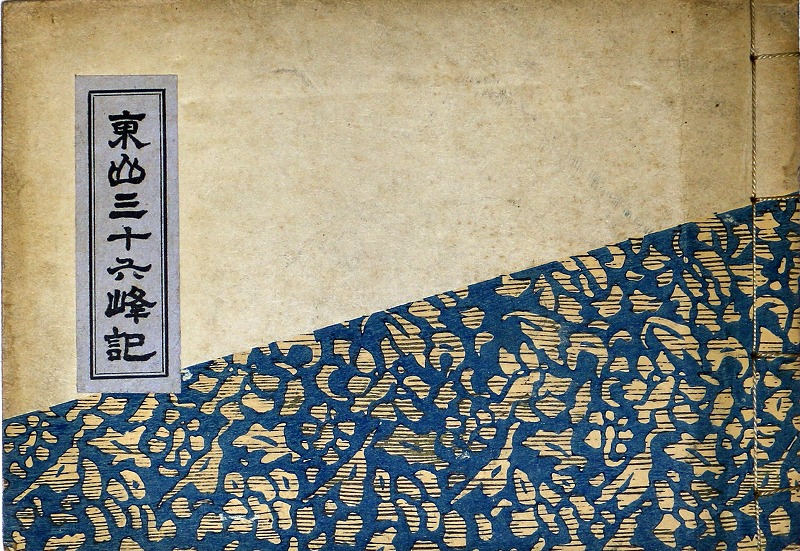 東山三十六峰記